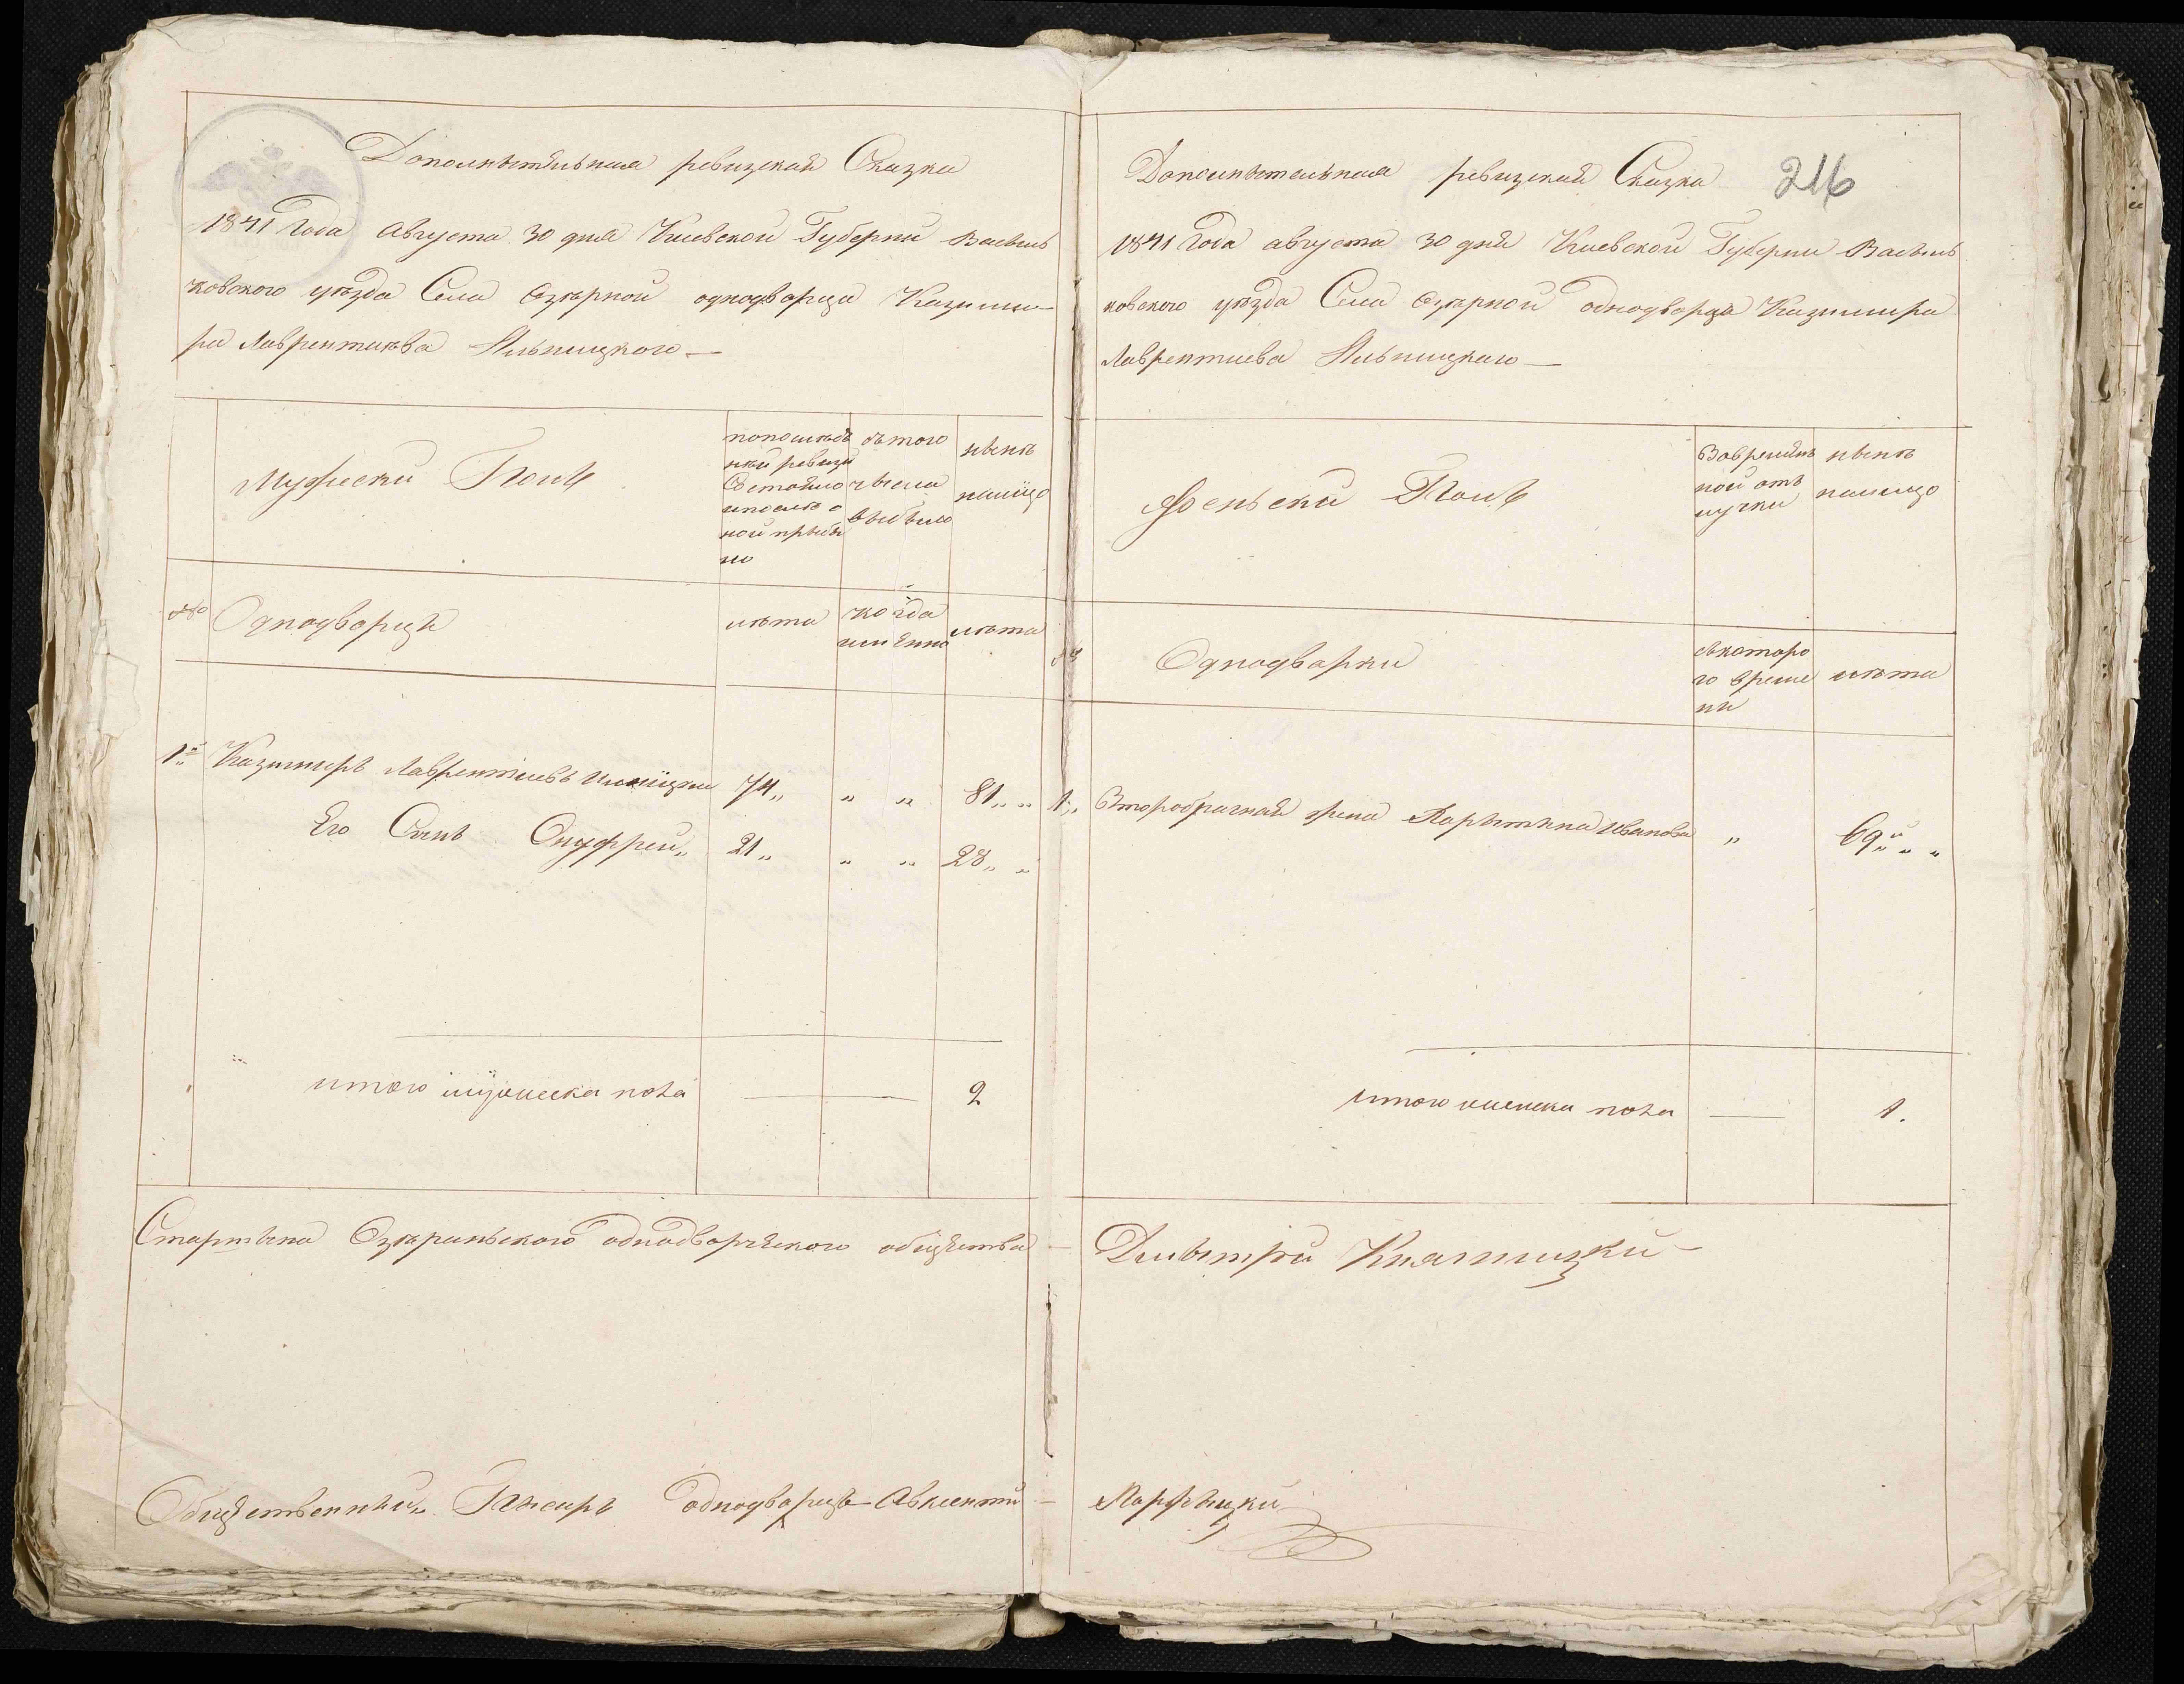 Дополнытельная ревизская Сказка
1841 Года Августа 30 дня Киевской Губернии Василь
ковского уезда Села Озѣрной однодворца Казими-
ра Лаврентиева Ильницкого —
Мужески Полъ
пополѣд
ней ревизи
Состояло
ипослѣ о
ной прыбы
ло
съ того
чысла
выбыло
нынѣ
налицо
№
Однодворцы
лѣта
когда
именно
лѣта
1й Казимиръ Лаврентіевъ Илницкий 74 „ „ „ 81 „ „
Его Сынъ Онуфрей „ 21 „ „ „ 28 „ „
итого мужеска пола — 2
Старшына Озѣранського однодворческого общества —
Общественный Писарь однодворецъ Авксентий —
216
Дополнытельная ревизская Сказка
1841 Года августа 30 дня Киевской Губернии Василь
ковского уезда Села Озѣрной однодворца Казимира
Лаврентиева Ильницкаго —
Женьски Полъ
Вовремѣн
ной отъ
лучки
нынѣ
налицо
№
Однодворки
съкоторо
го време
ни
лѣта
1 „ Второбрачная жена Мартына Иванова „ 69 „ „
итого женска пола — 1.
Дмытрий Княгницкий —